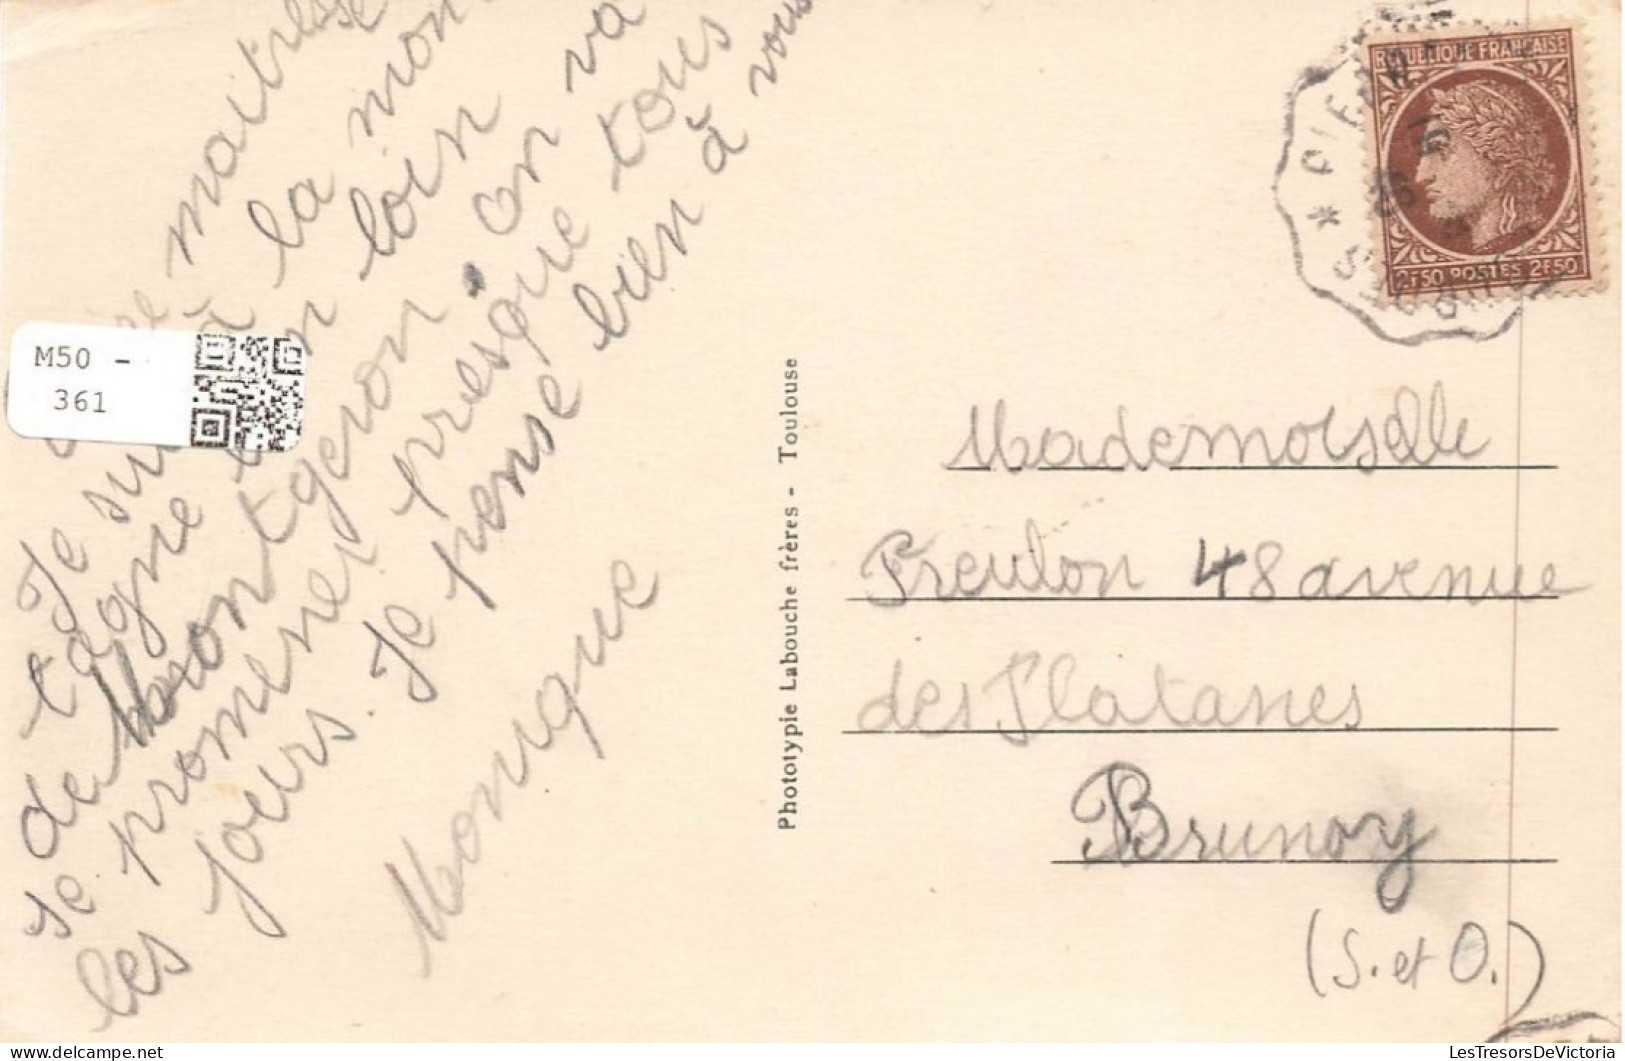 maîtresse
Je suis à la mon
tagne loin
de Montgeron. on va
se promener presque tous
les jours. Je pense bien à vous
Monique
M50 -
361
Phototypie Labouche frères - Toulouse
REPUBLIQUE FRANÇAISE
2F50 POSTES 2F50
Mademoiselle
Preulon 48 avenue
des Platanes
Brunoy
(S. et O.)
LesTresorsDeVictoria